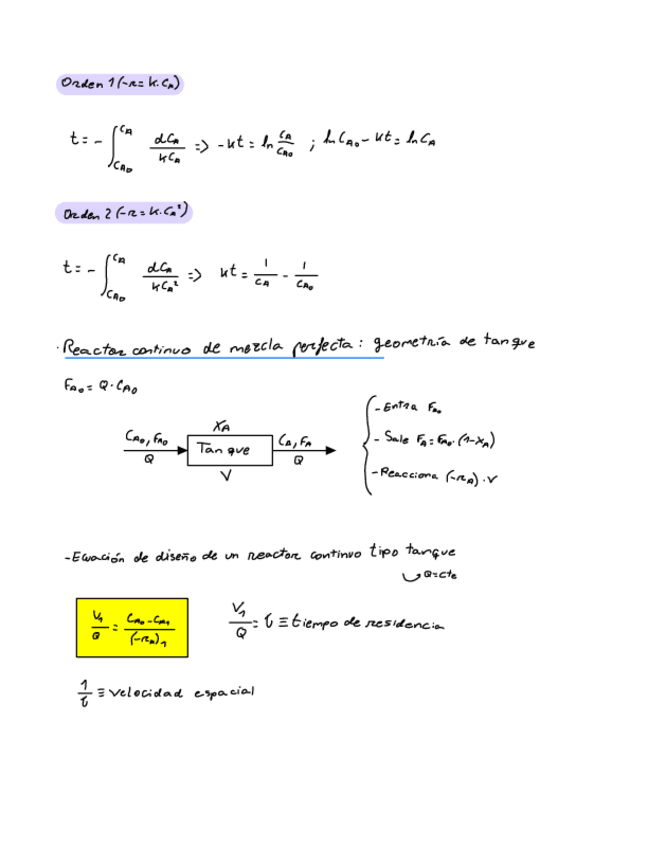 Orden 1 (-r = k·C_A)
t = - ∫_{C_A0}^{C_A} dC_A / kC_A => -kt = ln C_A / C_A0 ; ln C_A0 - kt = ln C_A
Orden 2 (-r = k·C_A²)
t = - ∫_{C_A0}^{C_A} dC_A / kC_A² => kt = 1 / C_A - 1 / C_A0
· Reactor continuo de mezcla perfecta: geometría de tanque
F_A0 = Q·C_A0
C_A0, F_A0
Q
X_A
Tanque
V
C_A, F_A
Q
- Entra F_A0
- Sale F_A = F_A0·(1-X_A)
- Reacciona (-r_A)·V
- Ecuación de diseño de un reactor continuo tipo tanque
Q = cte
V_1 / Q = C_A0 - C_A1 / (-r_A)_1
V_1 / Q = τ ≡ tiempo de residencia
1 / τ ≡ velocidad espacial